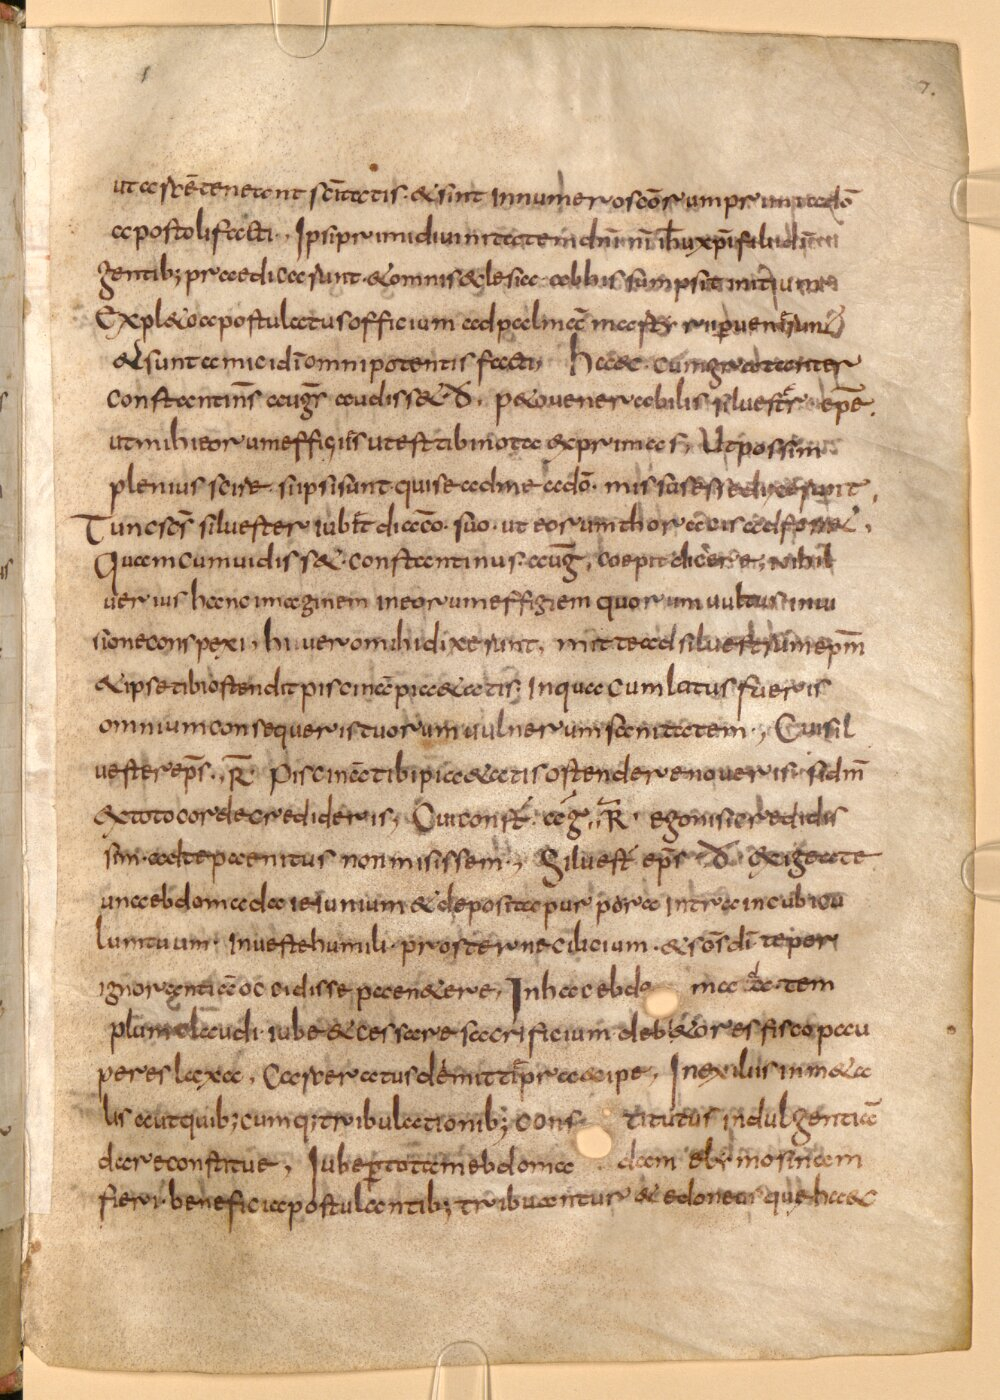 7.
ut arcē teneant scītatis· & sint In numero scōrum primi a dō
apostoli facti·, Ipsi primi diuinitatem dn̄i nr̄i ih̄u xp̄i filii di
gentib; praedicarunt· & omnis eclesia· ab his sumpsit initium
Expl& o a postulatus officium ad palmā martyrii peruenerunt
& sunt amici dī omnipotentis facti, haec cum gratanter
constantin̄s aug̅s audiss& d̅. p& o uenerabilis siluestr̄ ep̄e,
ut mihi eorum effigies ut est tibi nota exprimas, Ut possim
plenius scire· si ipsi sunt qui se ad me a dō· missos esse dixerunt,
Tunc scs̄ siluester iubet diacō· suo· ut eorum thoracis adferr&,
Quem cum uidiss&· constantinus· aug̅, coepit dicere, nihil
uerius hanc imaginem in eorum effigiem quorum uultus in ui
sione conspexi, hi uero mihi dixerunt, mitte ad siluestrum ep̄m
& ipse tibi ostendit piscinā pi&atis· In qua cum latus fueris
omnium consequeris tuorum uulnerum sanitatem·, Cui sil
uester ep̄s·, R̄ Piscinā tibi pi&atis ostendere noueris· si dn̄m
ex toto corde credideris, Cui const̄· aug̅, R̄· ego nisi credidis
sim· ad te paenitus non misissem·, Siluest̄ ep̄s d̅ exige a te
una ebdomada ieiunium & deposita purpura Intra in cubicu
lum tuum· In ueste humili· prosterne cilicium· & scōs dī te per
ignorantiā occidisse paenitere, In hac ebdo ma da tem
pla claudi· iube & cessare sacrificium debitores fisco pau
peres laxa, Carceratos dēmitti praecipe, In exiliis in metal
lis aut quib;cumq; tribulationib; cons titutus indulgentiā
dare constitue, Iube p totam ebdoma dam elymosinam
fieri· beneficia postulantib; tribuantur & idoneos qui haec